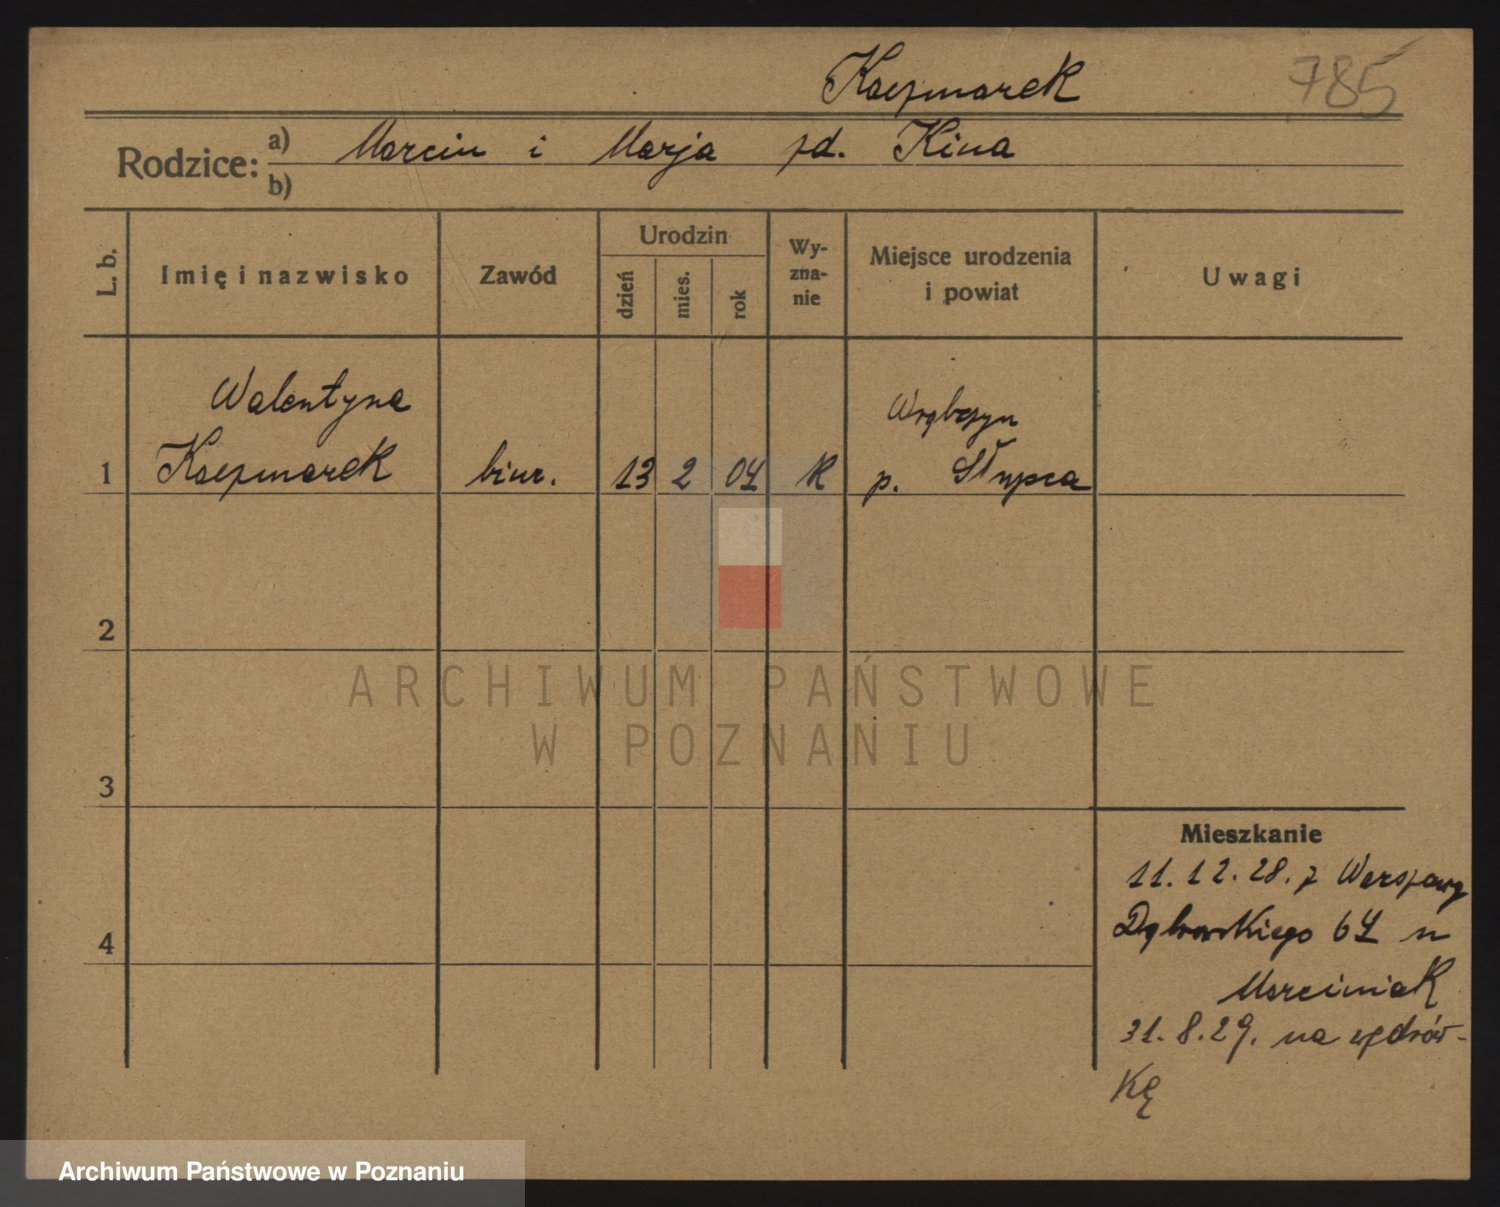 Kaczmarek
785
Rodzice:
a) Marcin i Marja zd. Kina
b)
L. b.
Imię i nazwisko
Zawód
Urodzin
dzień
mies.
rok
Wy-
zna-
nie
Miejsce urodzenia
i powiat
Uwagi
Walentyna
Wrąbczyn
1 Kaczmarek biur. 13 2 04 K p. Słupca
2
3
4
Mieszkanie
11.12.28. z Warszawy
Dąbrowskiego 64 u
Marciniak
31.8.29. na wędrów-
kę
ARCHIWUM PAŃSTWOWE
W POZNANIU
Archiwum Państwowe w Poznaniu